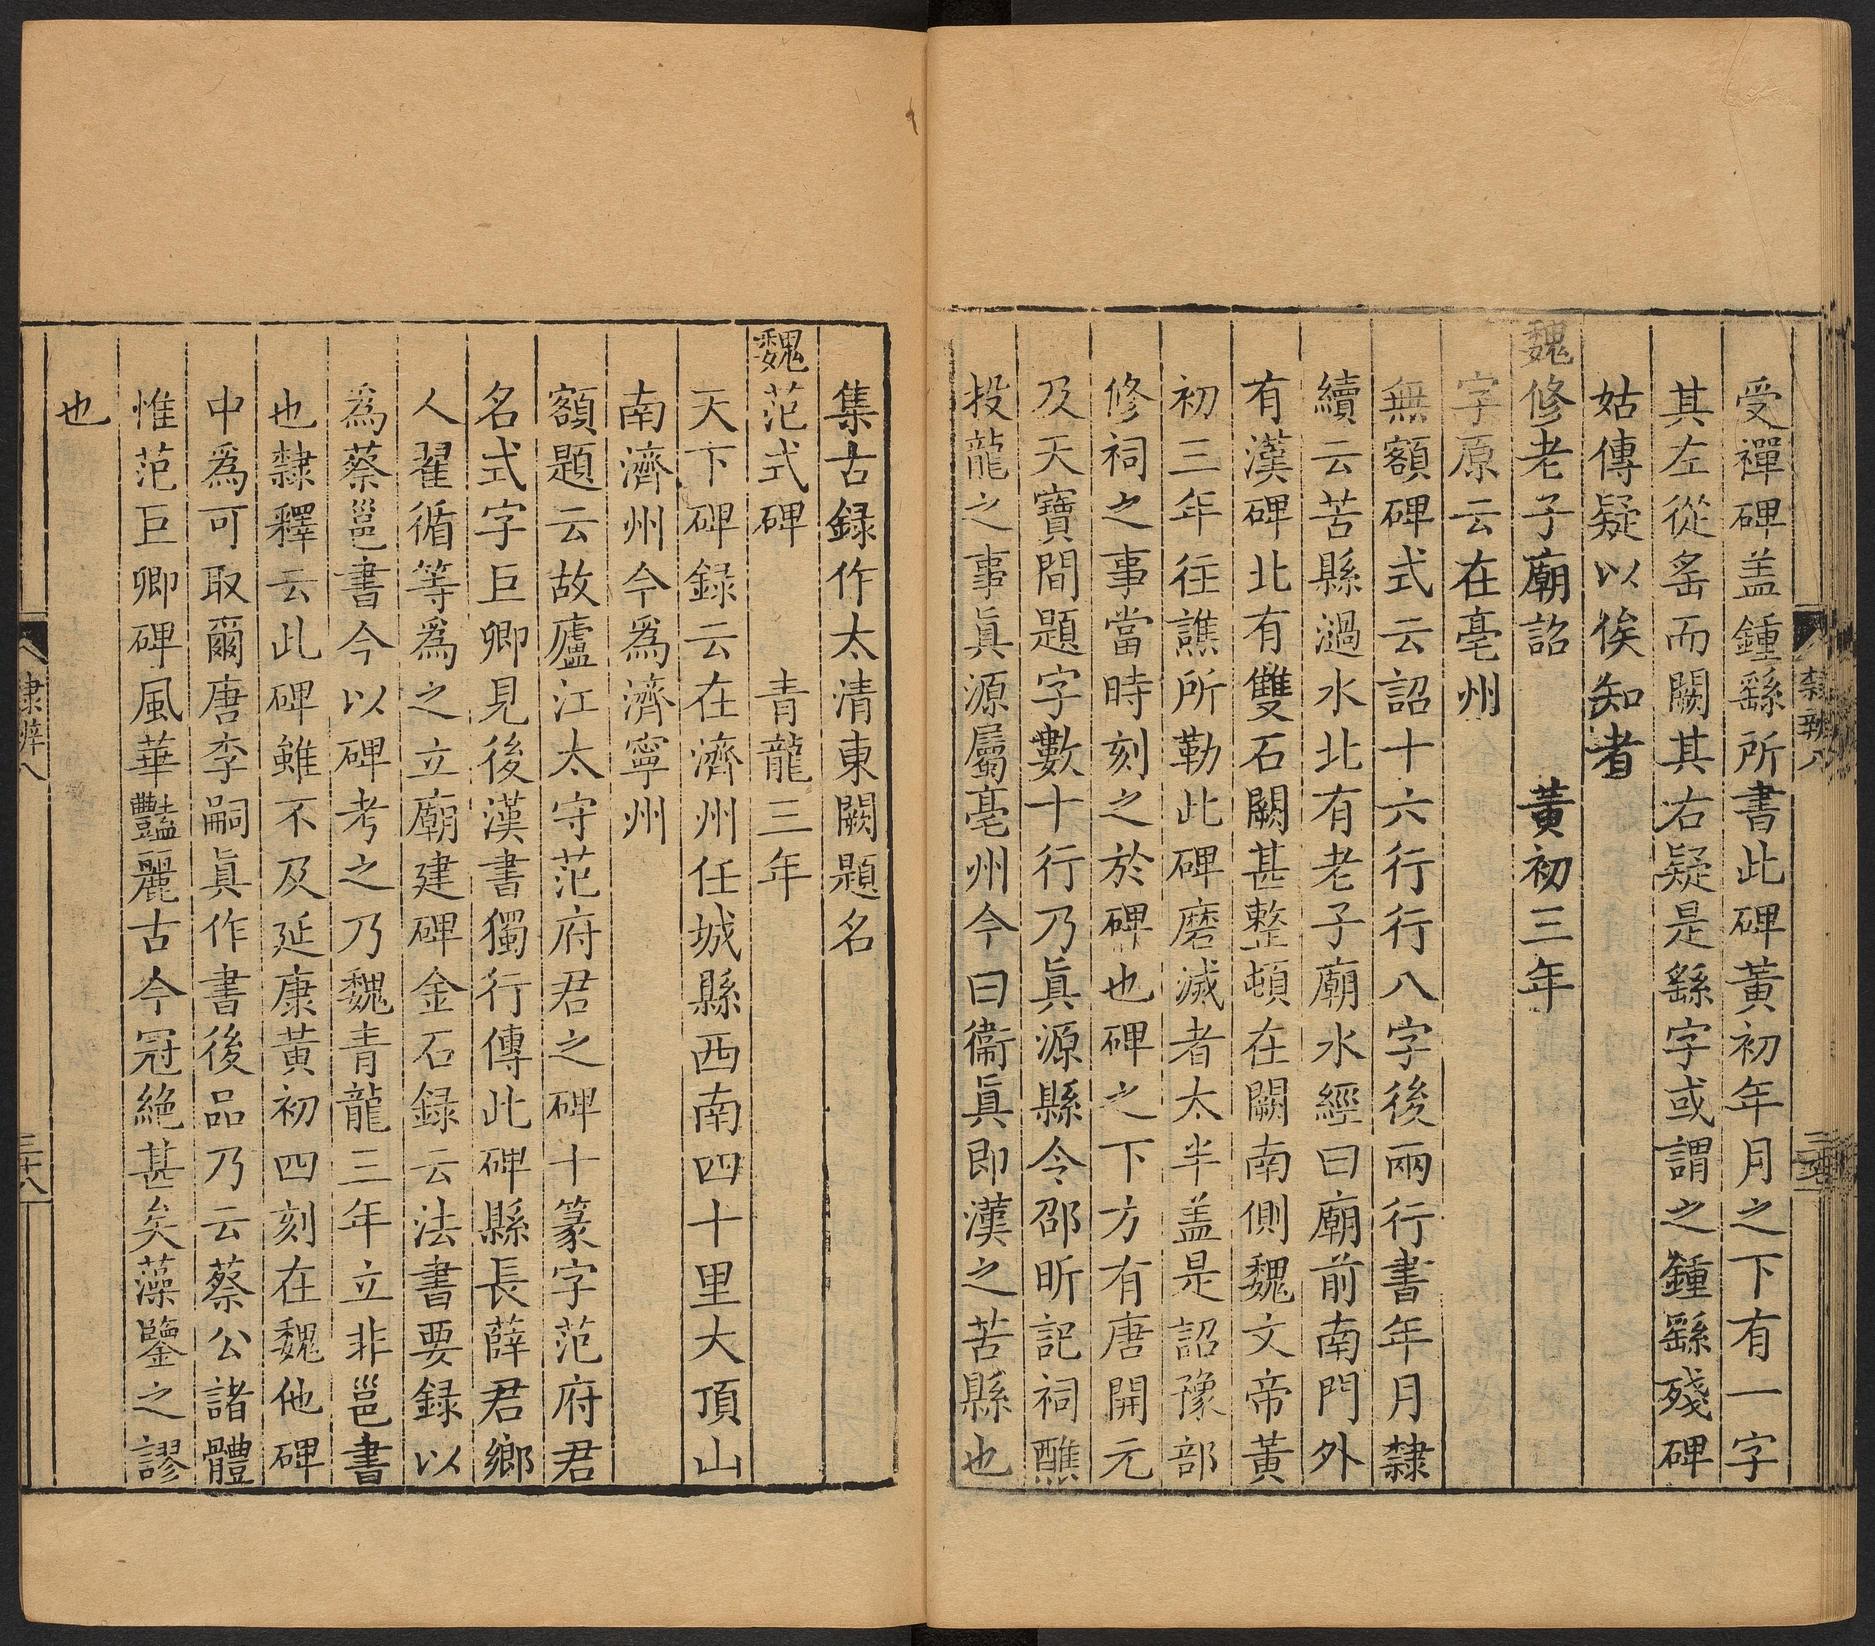 受禪碑盖鍾繇所書此碑黃初年月之下有一字
其左從䍃而闕其右疑是繇字或謂之鍾繇殘碑
姑傳疑以俟知者
魏修老子廟詔 黃初三年
字原云在亳州
無額碑式云詔十六行行八字後兩行書年月隸
續云苦縣濄水北有老子廟水經曰廟前南門外
有漢碑北有雙石闕甚整頓在闕南側魏文帝黃
初三年往譙所勒此碑磨滅者太半盖是詔豫部
修祠之事當時刻之於碑也碑之下方有唐開元
及天寶間題字數十行乃眞源縣令邵昕記祠醮
投龍之事眞源屬亳州今曰衞眞即漢之苦縣也
集古録作太清東闕題名
魏范式碑 青龍三年
天下碑録云在濟州任城縣西南四十里大頂山
南濟州今爲濟寧州
額題云故廬江太守范府君之碑十篆字范府君
名式字巨卿見後漢書獨行傳此碑縣長薛君鄉
人翟循等爲之立廟建碑金石録云法書要録以
為蔡邕書今以碑考之乃魏青龍三年立非邕書
也隸釋云此碑雖不及延康黃初四刻在魏他碑
中爲可取爾唐李嗣眞作書後品乃云蔡公諸體
惟范巨卿碑風華豔麗古今冠絶甚矣藻鑒之謬
也
隸辨八
隸辨八
三十八